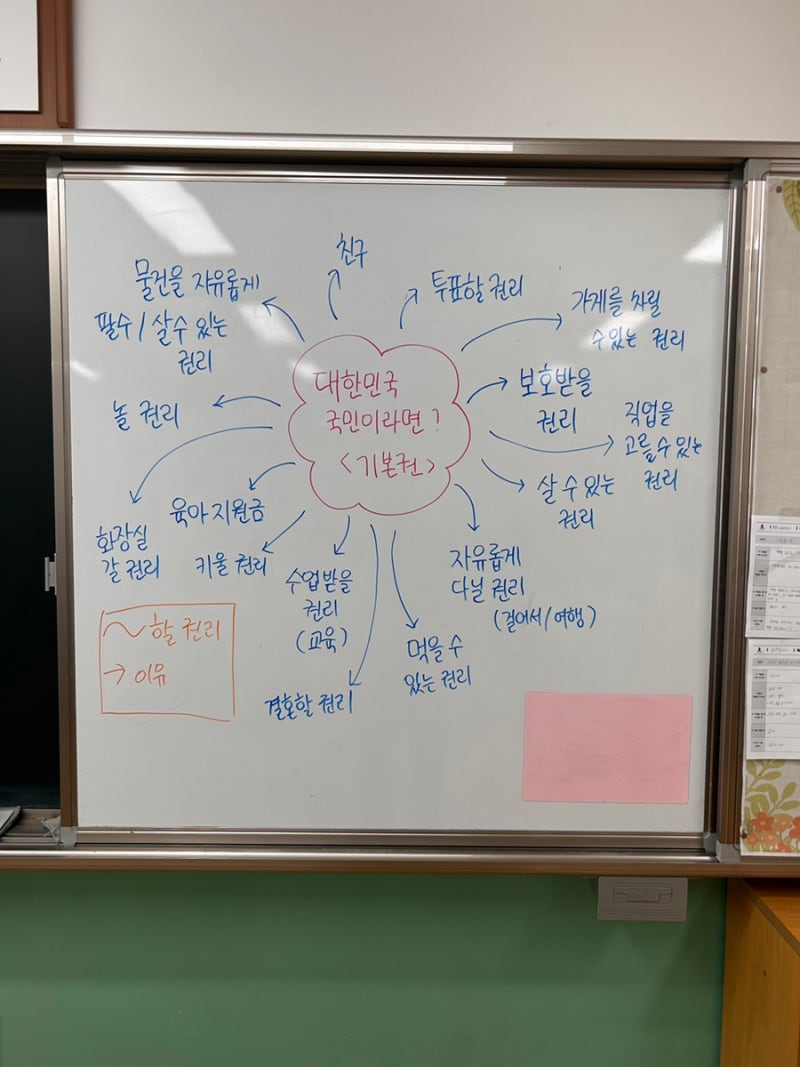 친구
물건을 자유롭게
팔수 / 살수 있는
권리
투표할 권리
가게를 차릴
수있는 권리
대한민국
국민이라면?
<기본권>
보호받을
권리
직업을
고를 수 있는
권리
놀 권리
살 수 있는
권리
육아 지원금
화장실
갈 권리
키울 권리
수업받을
권리
(교육)
자유롭게
다닐 권리
(걸어서/여행)
먹을 수
있는 권리
결혼할 권리
~ 할 권리
→ 이유